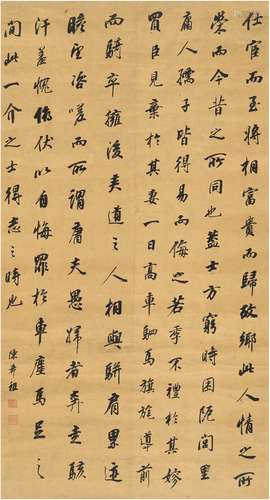 仕宦而至將相富貴而歸故鄉此人情之所
榮而今昔之所同也蓋士方窮時困阨閭里
庸人孺子皆得易而侮之若季不禮於其嫂
買臣見棄於其妻一旦高車駟馬旗旄導前
而騎卒擁後夾道之人相與駢肩累迹
瞻望咨嗟而所謂庸夫愚婦者奔走駭
汗羞愧俯伏以自悔罪於車塵馬足之
間此一介之士得志之時也
陳